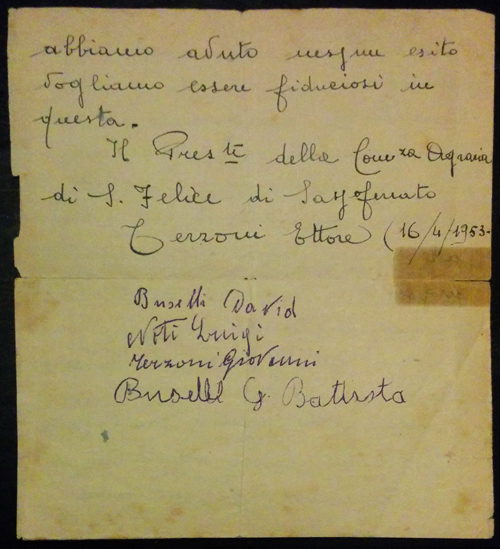 abbiamo avuto nesun esito
vogliamo essere fiduciosi in
questa.
Il Preste della Comza Agraria
di S. Felice di Sassoferrato
Terzoni Ettore (16/4/1953-
Buselli David
Noti Luigi
Terzoni Giovanni
Buselli G. Battista